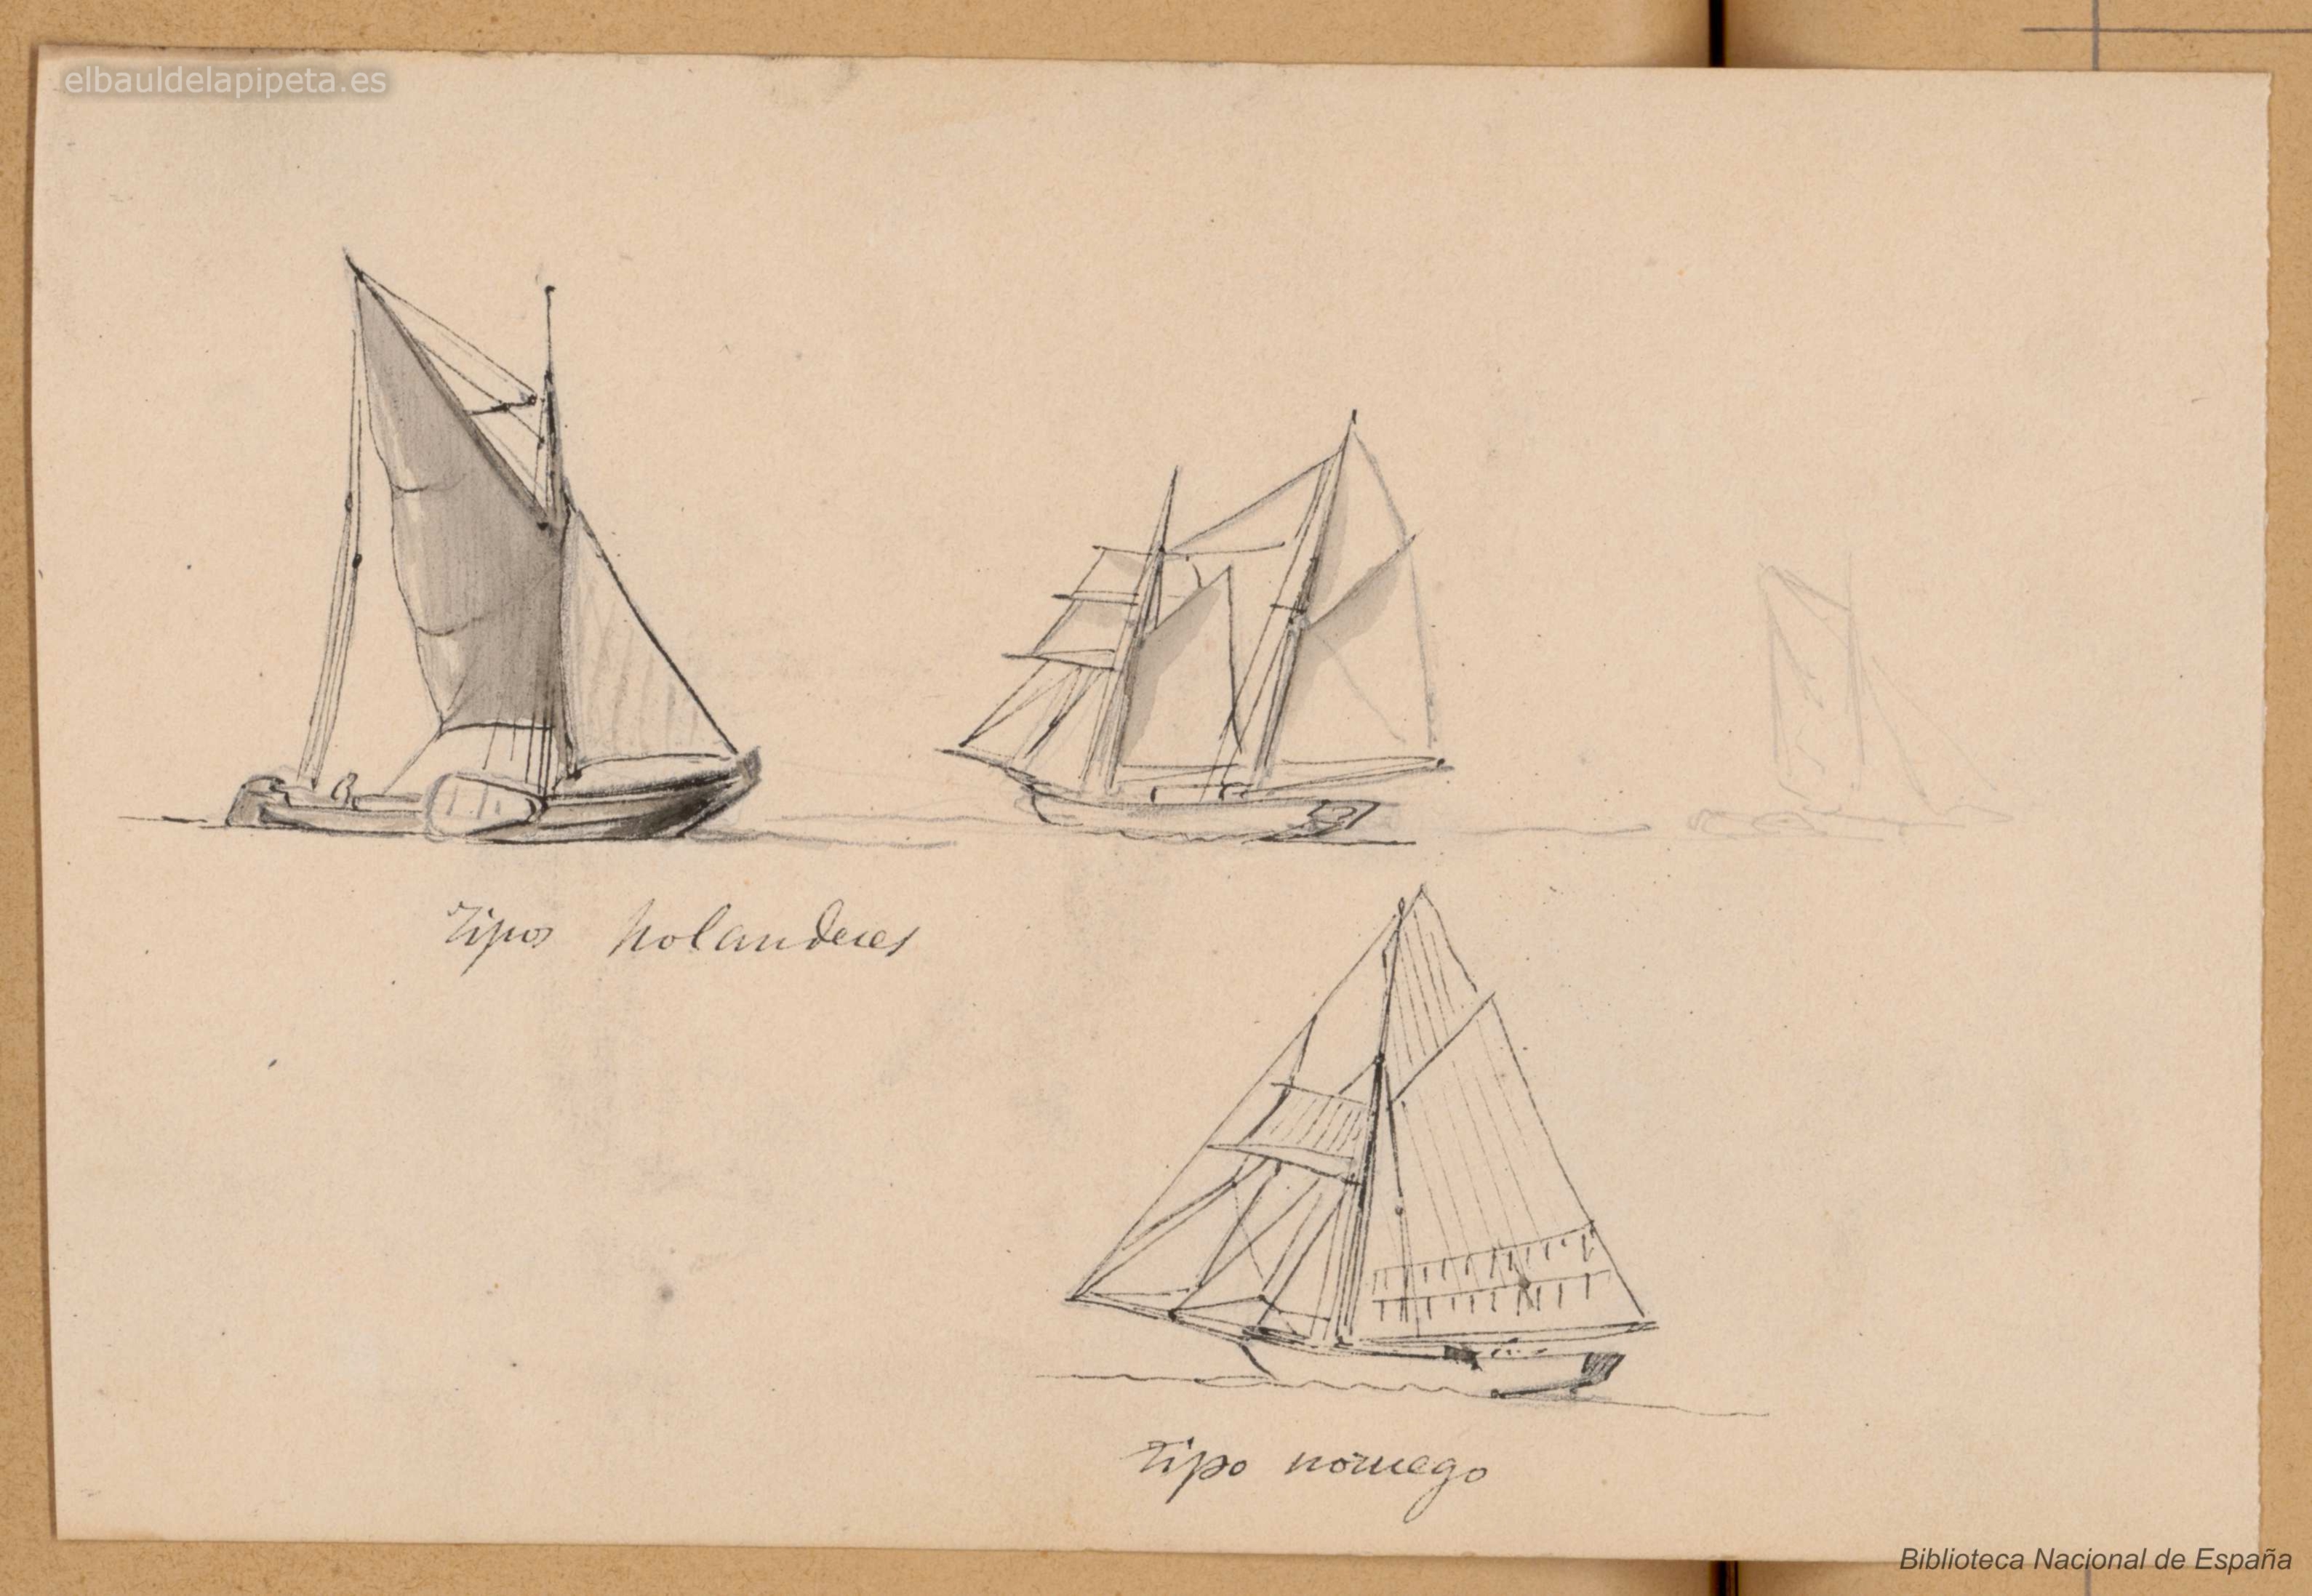 elbauldelapipeta.es
Tipos holandeses
Tipo noruego
Biblioteca Nacional de España